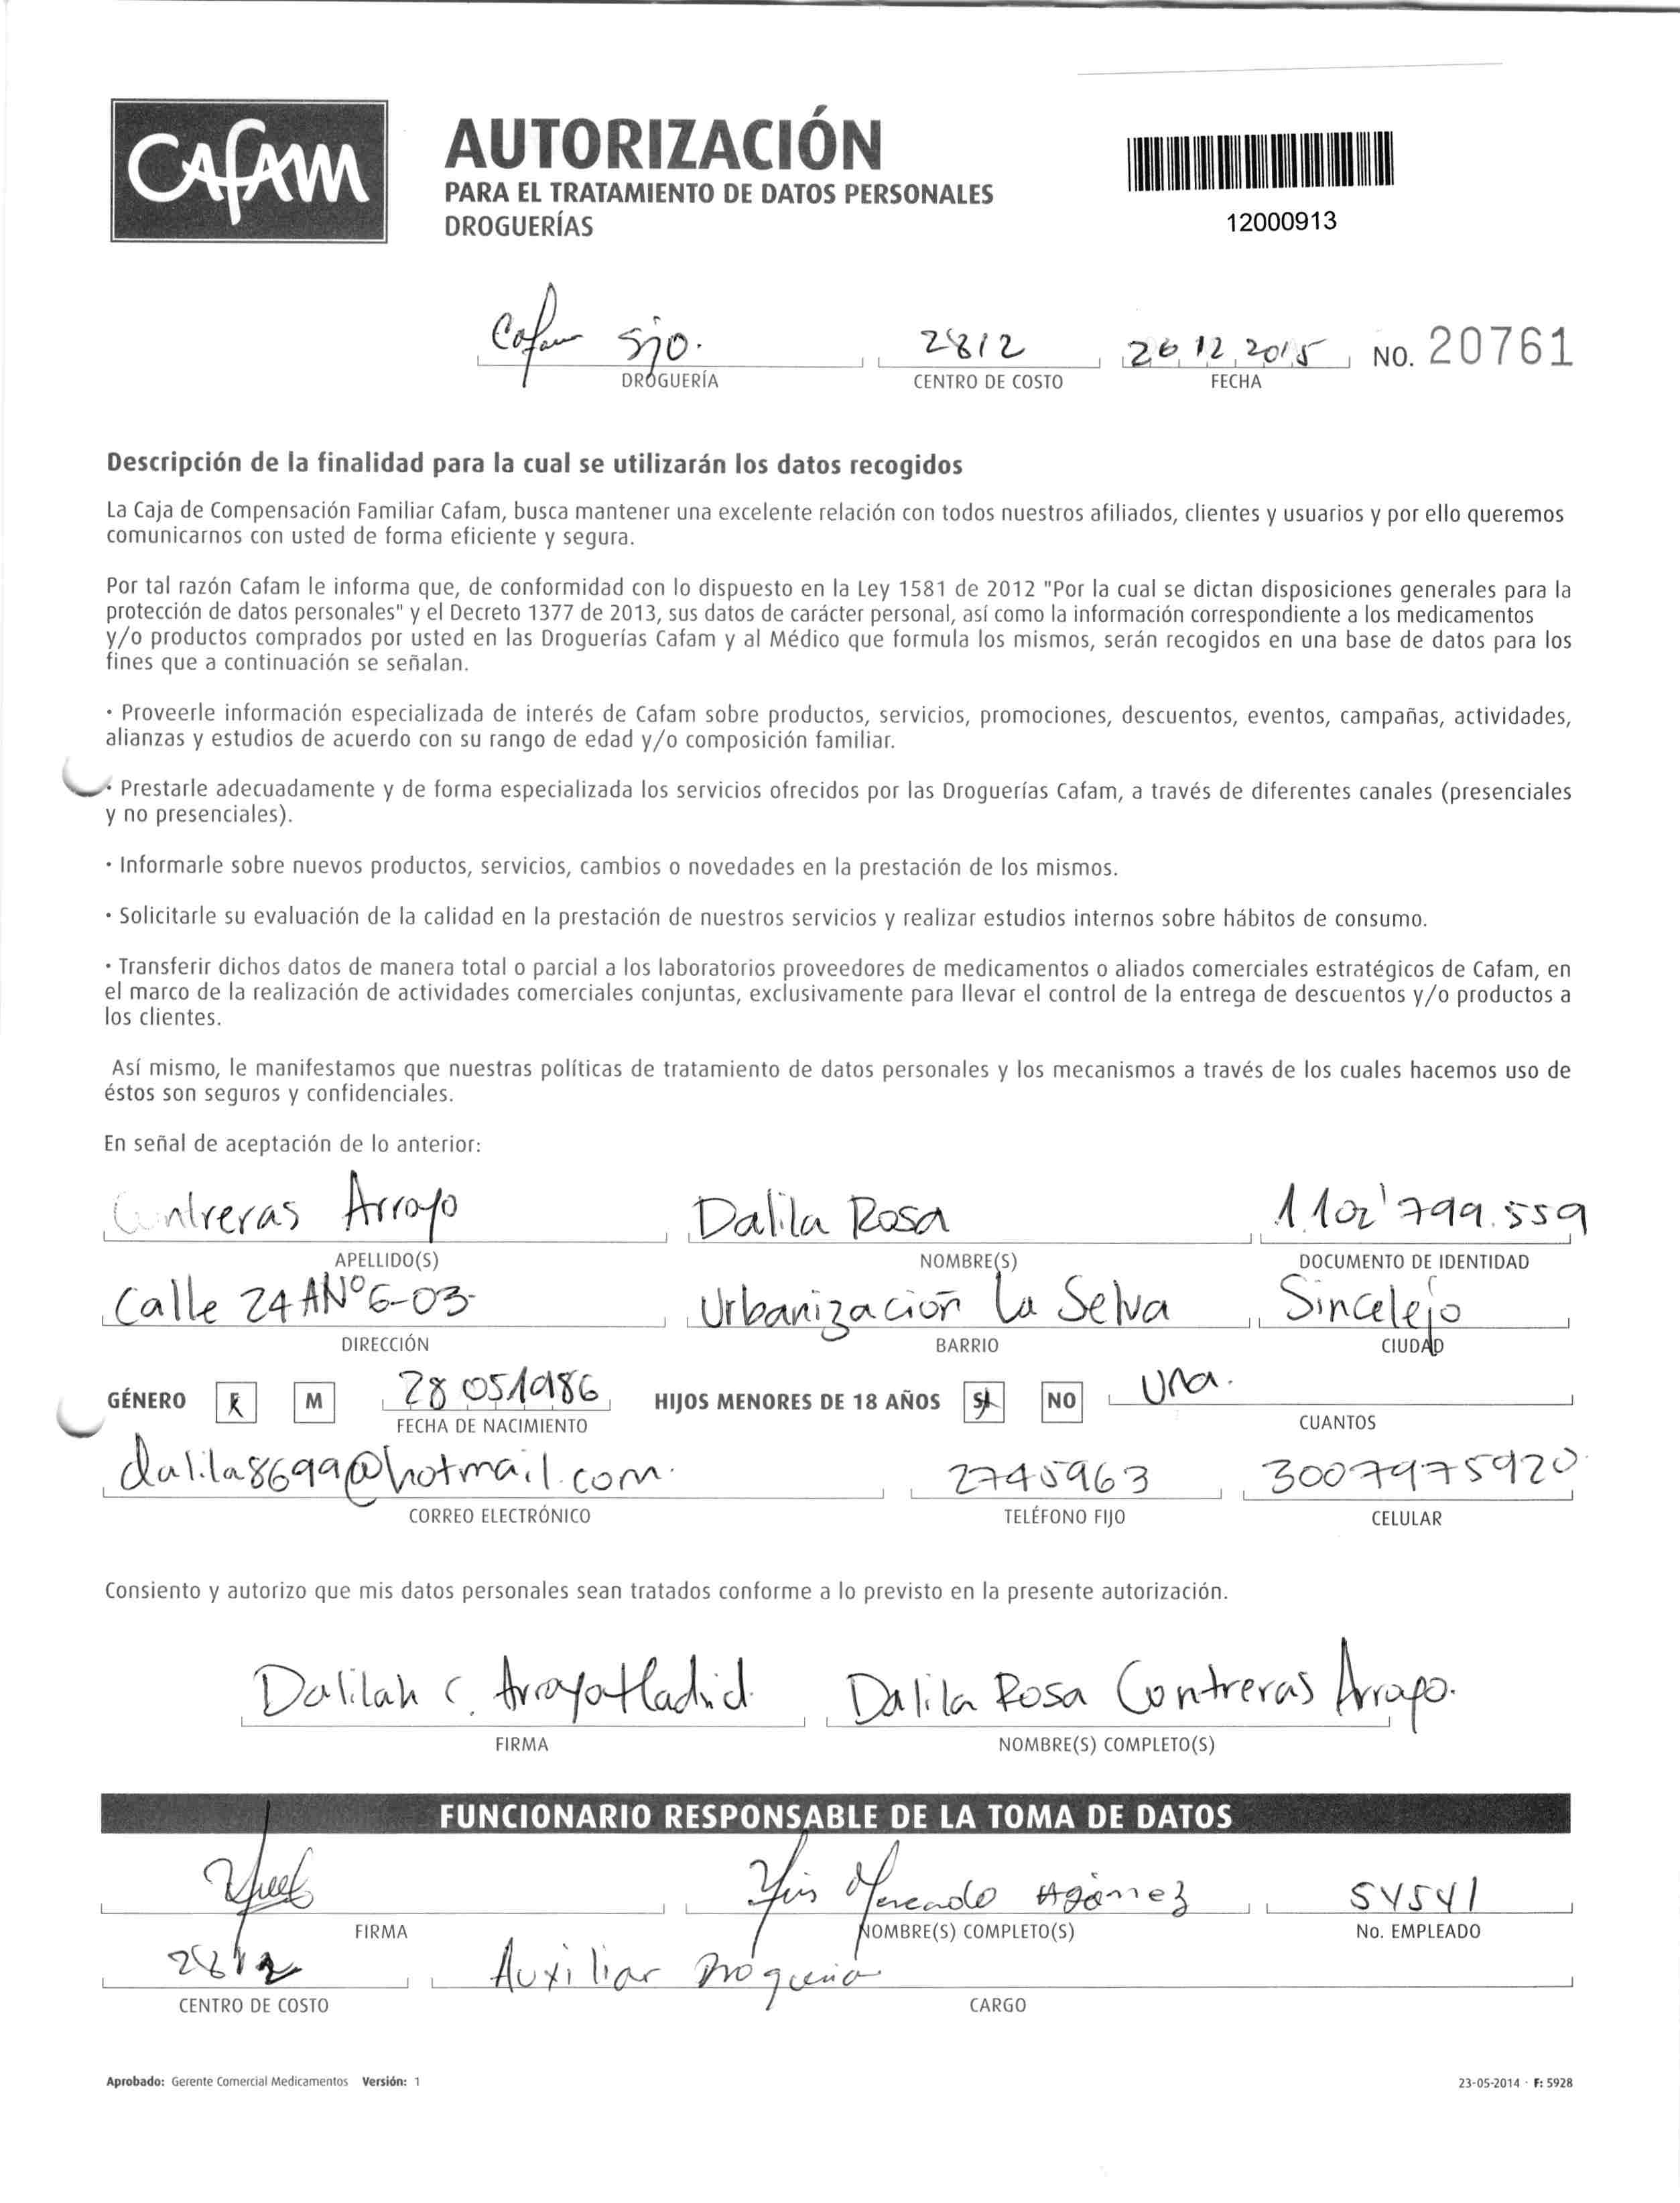 CAFAM
AUTORIZACIÓN
PARA EL TRATAMIENTO DE DATOS PERSONALES
DROGUERÍAS
12000913
Cafam sjo. 2812 26 12 2015 NO. 20761
DROGUERÍA CENTRO DE COSTO FECHA
Descripción de la finalidad para la cual se utilizarán los datos recogidos
La Caja de Compensación Familiar Cafam, busca mantener una excelente relación con todos nuestros afiliados, clientes y usuarios y por ello queremos
comunicarnos con usted de forma eficiente y segura.
Por tal razón Cafam le informa que, de conformidad con lo dispuesto en la Ley 1581 de 2012 "Por la cual se dictan disposiciones generales para la
protección de datos personales" y el Decreto 1377 de 2013, sus datos de carácter personal, así como la información correspondiente a los medicamentos
y/o productos comprados por usted en las Droguerías Cafam y al Médico que formula los mismos, serán recogidos en una base de datos para los
fines que a continuación se señalan.
• Proveerle información especializada de interés de Cafam sobre productos, servicios, promociones, descuentos, eventos, campañas, actividades,
alianzas y estudios de acuerdo con su rango de edad y/o composición familiar.
• Prestarle adecuadamente y de forma especializada los servicios ofrecidos por las Droguerías Cafam, a través de diferentes canales (presenciales
y no presenciales).
• Informarle sobre nuevos productos, servicios, cambios o novedades en la prestación de los mismos.
• Solicitarle su evaluación de la calidad en la prestación de nuestros servicios y realizar estudios internos sobre hábitos de consumo.
• Transferir dichos datos de manera total o parcial a los laboratorios proveedores de medicamentos o aliados comerciales estratégicos de Cafam, en
el marco de la realización de actividades comerciales conjuntas, exclusivamente para llevar el control de la entrega de descuentos y/o productos a
los clientes.
Así mismo, le manifestamos que nuestras políticas de tratamiento de datos personales y los mecanismos a través de los cuales hacemos uso de
éstos son seguros y confidenciales.
En señal de aceptación de lo anterior:
Contreras Arroyo Dalila Rosa 1.102'799.559
APELLIDO(S) NOMBRE(S) DOCUMENTO DE IDENTIDAD
Calle 24 A Nº 6-03 Urbanización La Selva Sincelejo
DIRECCIÓN BARRIO CIUDAD
GÉNERO F M 28 05 1986 HIJOS MENORES DE 18 AÑOS SI NO Una.
FECHA DE NACIMIENTO CUANTOS
dalila8699@hotmail.com. 2745963 3007975920
CORREO ELECTRÓNICO TELÉFONO FIJO CELULAR
Consiento y autorizo que mis datos personales sean tratados conforme a lo previsto en la presente autorización.
Dalilah C. Dalila Rosa Contreras Arroyo.
FIRMA NOMBRE(S) COMPLETO(S)
FUNCIONARIO RESPONSABLE DE LA TOMA DE DATOS
Mercado Agámez 54541
FIRMA NOMBRE(S) COMPLETO(S) No. EMPLEADO
2812 Auxiliar Droguería
CENTRO DE COSTO CARGO
Aprobado: Gerente Comercial Medicamentos Versión: 1 23-05-2014 · F: 5928